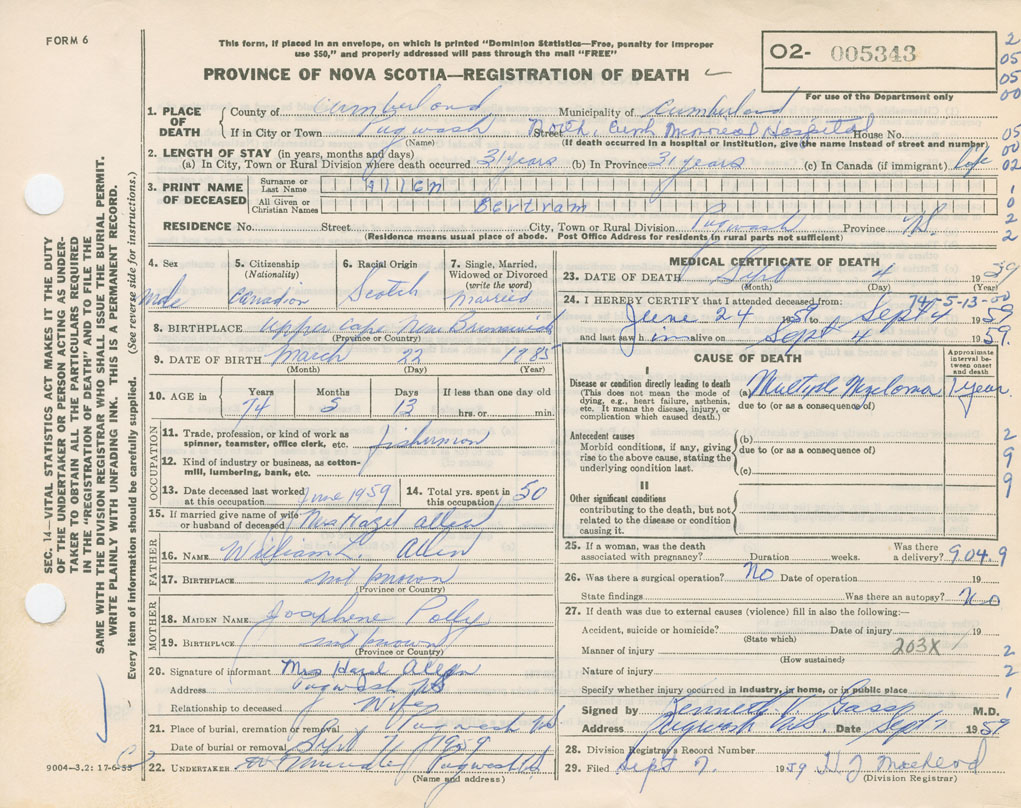 FORM 6
This form, if placed in an envelope, on which is printed "Dominion Statistics—Free, penalty for improper
use $50," and properly addressed will pass through the mail "FREE"
PROVINCE OF NOVA SCOTIA—REGISTRATION OF DEATH
O2- 005343
For use of the Department only
2
05
05
00
05
00
02
1
0
2
2
SEC. 14—VITAL STATISTICS ACT MAKES IT THE DUTY
OF THE UNDERTAKER OR PERSON ACTING AS UNDER-
TAKER TO OBTAIN ALL THE PARTICULARS REQUIRED
IN THE "REGISTRATION OF DEATH" AND TO FILE THE
SAME WITH THE DIVISION REGISTRAR WHO SHALL ISSUE THE BURIAL PERMIT.
WRITE PLAINLY WITH UNFADING INK. THIS IS A PERMANENT RECORD.
Every item of information should be carefully supplied. (See reverse side for instructions.)
1. PLACE OF DEATH
County of Cumberland Municipality of Cumberland
If in City or Town Pugwash Street North Memorial Hospital House No.
(Name) (If death occurred in a hospital or institution, give the name instead of street and number)
2. LENGTH OF STAY (in years, months and days)
(a) In City, Town or Rural Division where death occurred 31 years (b) In Province 31 years (c) In Canada (if immigrant) life
3. PRINT NAME OF DECEASED
Surname or Last Name Allen
All Given or Christian Names Bertram
RESIDENCE No. Street City, Town or Rural Division Pugwash Province N.S.
(Residence means usual place of abode. Post Office Address for residents in rural parts not sufficient)
4. Sex male
5. Citizenship (Nationality) Canadian
6. Racial Origin Scotch
7. Single, Married, Widowed or Divorced (write the word) Married
8. BIRTHPLACE Upper Cape New Brunswick
(Province or Country)
9. DATE OF BIRTH March 22 1885
(Month) (Day) (Year)
10. AGE in Years 74 Months 5 Days 13 If less than one day old hrs. or min.
OCCUPATION
11. Trade, profession, or kind of work as spinner, teamster, office clerk, etc. fisherman
12. Kind of industry or business, as cotton-mill, lumbering, bank, etc.
13. Date deceased last worked at this occupation June 1959
14. Total yrs. spent in this occupation 50
15. If married give name of wife or husband of deceased Mrs Hazel Allen
FATHER
16. NAME William L. Allen
17. BIRTHPLACE not known
(Province or Country)
MOTHER
18. MAIDEN NAME Josephene Polly
19. BIRTHPLACE not known
(Province or Country)
20. Signature of informant Mrs Hazel Allen
Address Pugwash NS
Relationship to deceased Wife
21. Place of burial, cremation or removal Pugwash NS
Date of burial or removal Sept 7 1959
22. UNDERTAKER Pugwash NS
(Name and address)
9004—3.2: 17-6-55
MEDICAL CERTIFICATE OF DEATH
23. DATE OF DEATH Sept 4 1959
(Month) (Day) (Year)
24. I HEREBY CERTIFY that I attended deceased from: 74-5-13-00
June 24 to Sept 4 1959
and last saw him alive on Sept 4 1959.
CAUSE OF DEATH
Approximate interval between onset and death
I
Disease or condition directly leading to death
(This does not mean the mode of dying, e.g., heart failure, asthenia, etc. It means the disease, injury, or complication which caused death.)
(a) Multiple Myeloma 1 year
due to (or as a consequence of)
Antecedent causes
Morbid conditions, if any, giving rise to the above cause, stating the underlying condition last.
(b)
due to (or as a consequence of)
(c)
2
9
9
9
II
Other significant conditions
contributing to the death, but not related to the disease or condition causing it.
25. If a woman, was the death associated with pregnancy? Duration weeks. Was there a delivery? 904.9
26. Was there a surgical operation? No Date of operation 19
State findings Was there an autopsy? No
27. If death was due to external causes (violence) fill in also the following:—
Accident, suicide or homicide? Date of injury 19
(State which)
Manner of injury 203X 2
(How sustained)
Nature of injury 2
Specify whether injury occurred in industry, in home, or in public place 1
Signed by Kenneth V. Gass M.D.
Address Pugwash N.S. Date Sept 7 1959
28. Division Registry's Record Number
29. Filed Sept 7. 1959 H J MacLeod
(Division Registrar)